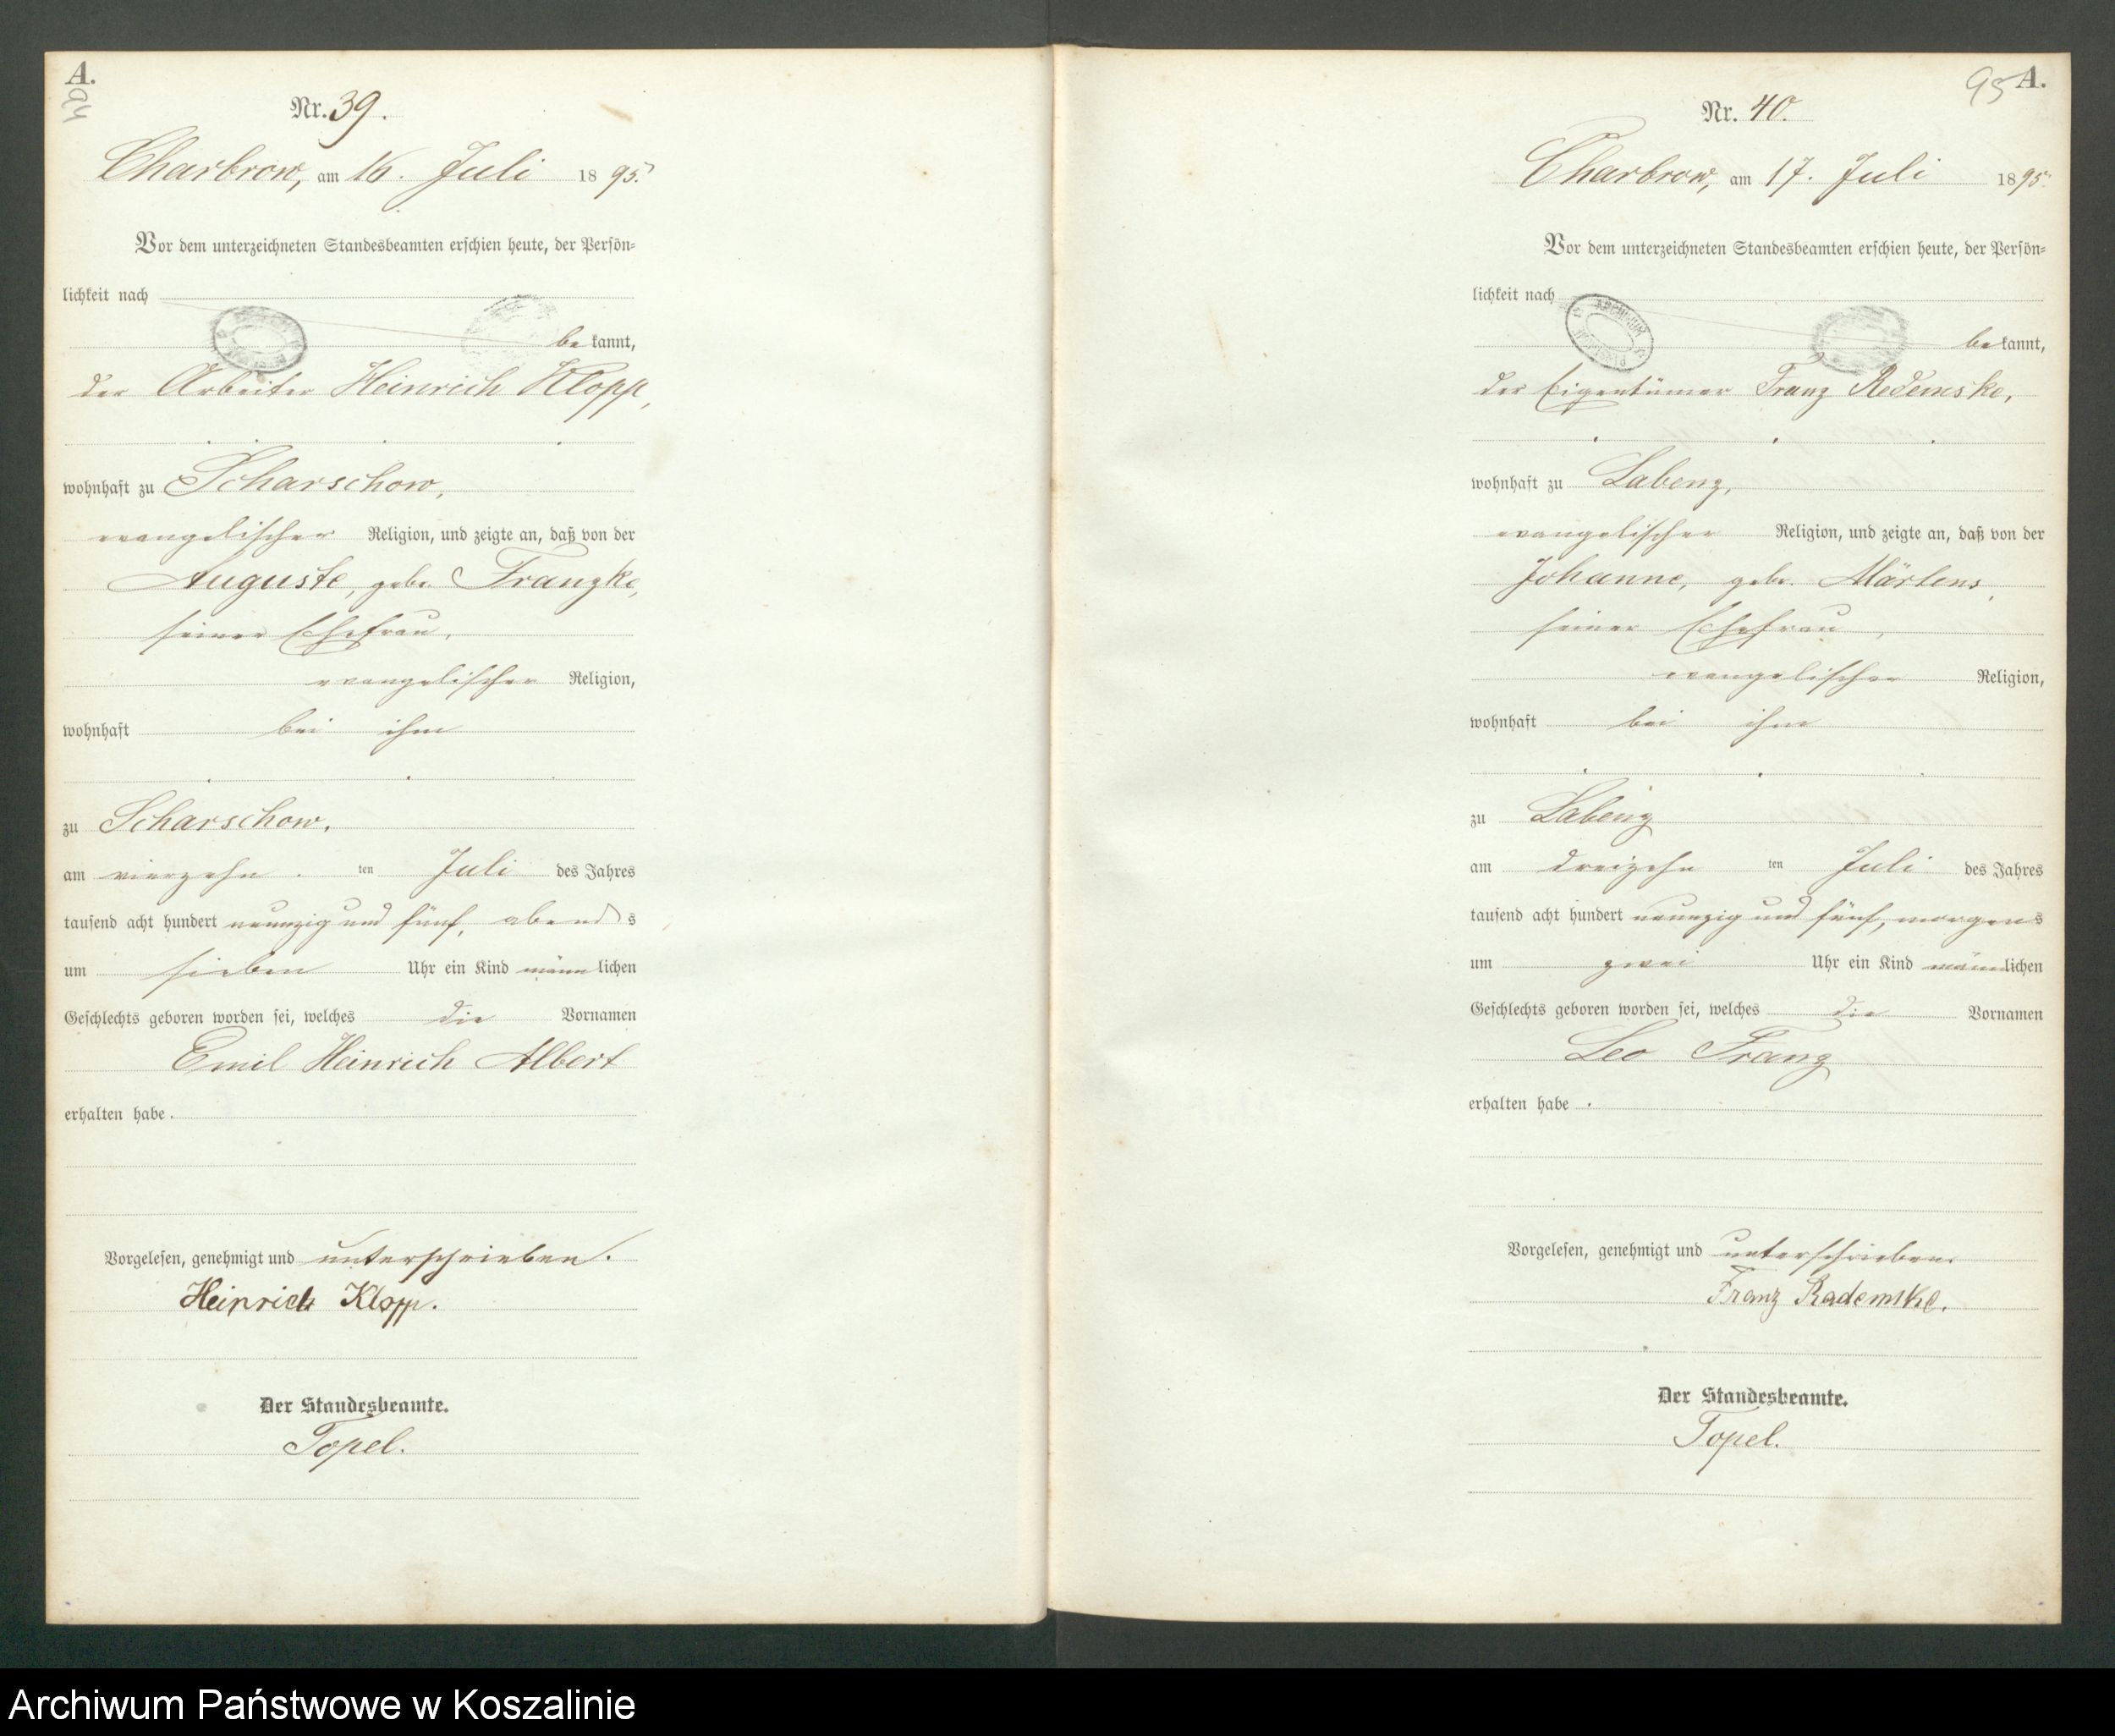 A.
94
Nr. 39.
Charbrow, am 16. Juli 1895.
Vor dem unterzeichneten Standesbeamten erschien heute, der Persön-
lichkeit nach
bekannt,
der Arbeiter Heinrich Klopp,
wohnhaft zu Scharschow,
evangelischer Religion, und zeigte an, daß von der
Auguste, geb. Franzke,
seiner Ehefrau,
evangelischer Religion,
wohnhaft bei ihm
zu Scharschow,
am vierzehn ten Juli des Jahres
tausend acht hundert neunzig und fünf, abends
um sieben Uhr ein Kind männlichen
Geschlechts geboren worden sei, welches die Vornamen
Emil Heinrich Albert
erhalten habe.
Vorgelesen, genehmigt und unterschrieben.
Heinrich Klopp.
Der Standesbeamte.
Topel.
95 A.
Nr. 40.
Charbrow, am 17. Juli 1895.
Vor dem unterzeichneten Standesbeamten erschien heute, der Persön-
lichkeit nach
ARCHIWUM
bekannt,
der Eigentümer Franz Redemske,
wohnhaft zu Labenz,
evangelischer Religion, und zeigte an, daß von der
Johanne, geb. Märtens,
seiner Ehefrau,
evangelischer Religion,
wohnhaft bei ihm
zu Labenz
am dreizehn ten Juli des Jahres
tausend acht hundert neunzig und fünf, morgens
um zwei Uhr ein Kind männlichen
Geschlechts geboren worden sei, welches die Vornamen
Leo Franz
erhalten habe.
Vorgelesen, genehmigt und unterschrieben.
Franz Rademske.
Der Standesbeamte.
Topel.
Archiwum Państwowe w Koszalinie